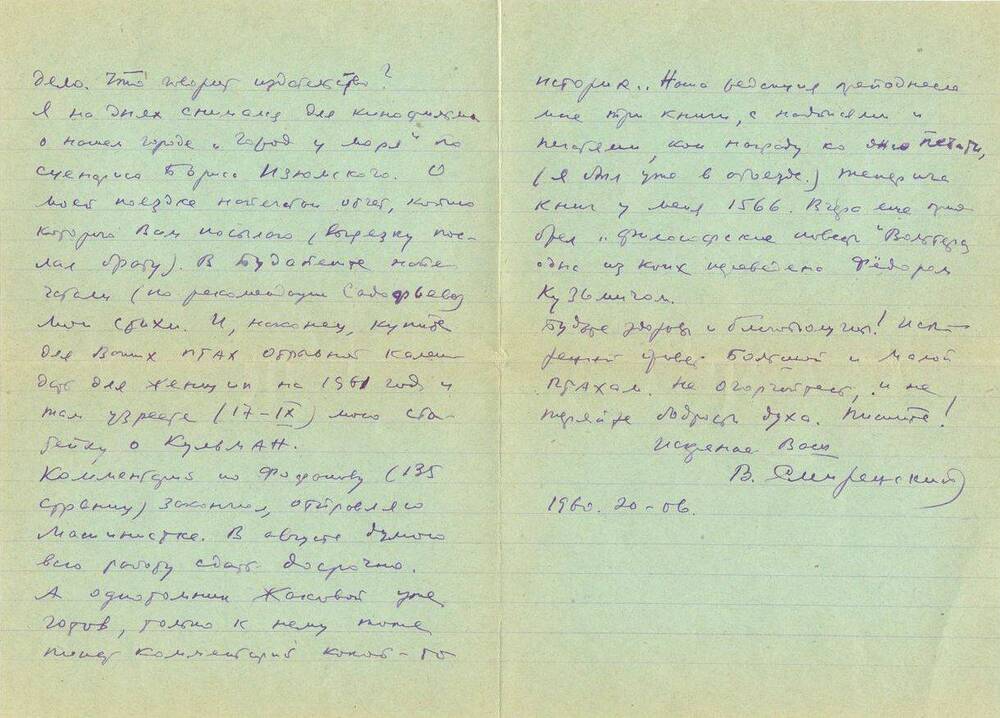 дело. Что творит издательство?
Я на днях снимался для кинофильма
о нашем городе „Город у моря" по
сценарию Бориса Изюмского. О
моей поездке напечатан отчет, копию
которого Вам посылаю (вырезку пос-
лал брату). В Будапеште напе
чатали (по рекомендации Садофьева)
мои стихи. И, наконец, купите
для Ваших птах отрывной кален
дарь для женщин на 1961 год и
там узреете (17-IX) мою ста-
тейку о Кульман.
Комментарий по Фофанову (135
страниц) закончил, отправляю
машинистке. В августе думаю
всю работу сдать досрочно.
А однотомник уже
готов, только к нему тоже
пишет комментарий какой-то
историк.. Наша редакция преподнесла
мне три книги, с надписями и
печатями, как награду ко дню печати,
(я был уже в отъезде.) Теперича
книг у меня 1566. Вчера еще прио
брел „Философские повести" Вольтера
одна из коих переведена Фёдором
Кузьмичом.
Будьте здоровы и благополучны! Искр
ренний привет Большой и Малой
птахам. Не огорчайтесь, и не
теряйте бодрость духа. Пишите!
Искренне Ваш
В. Смиренский
1960. 20-06.